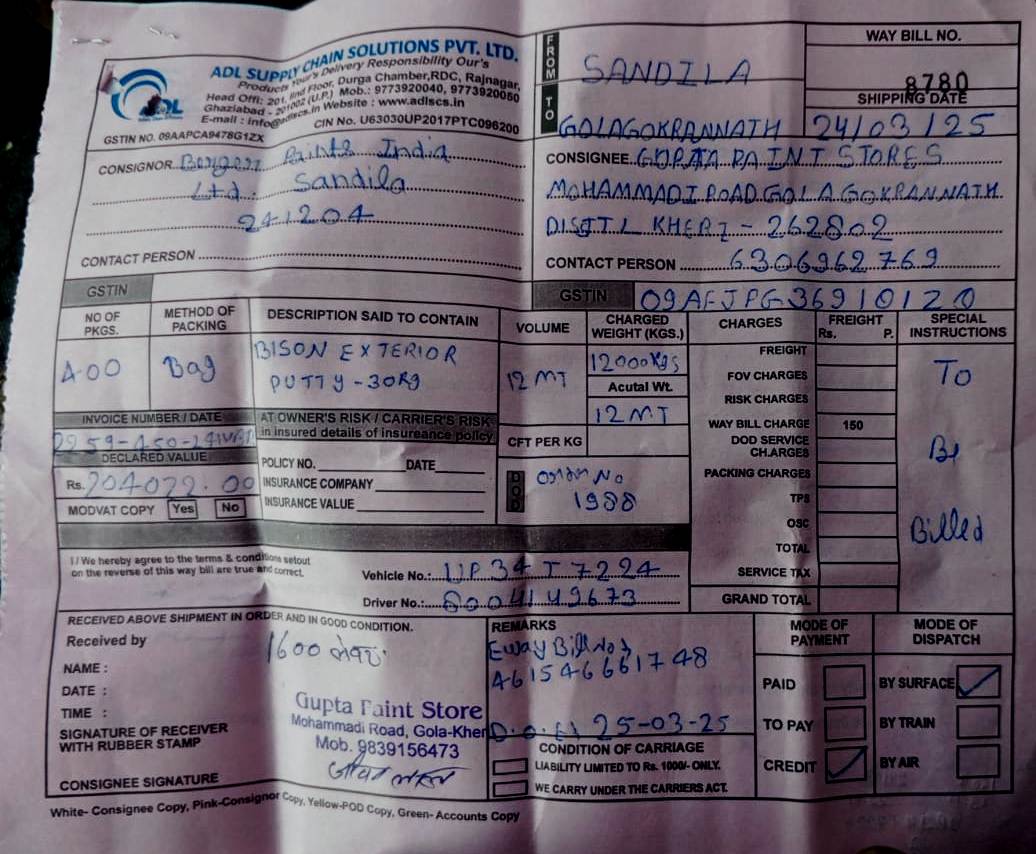 ADL SUPPLY CHAIN SOLUTIONS PVT. LTD.
Products Your's Delivery Responsibility Our's
Head Offi: 201, IInd Floor, Durga Chamber,RDC, Rajnagar,
Ghaziabad - 201002 (U.P.) Mob.: 9773920040, 9773920050
E-mail : info@adlscs.in Website : www.adlscs.in
CIN No. U63030UP2017PTC096200
GSTIN NO. 09AAPCA9478G1ZX
FROM SANDILA
TO GOLAGOKRANNATH
WAY BILL NO.
8780
SHIPPING DATE
24/03/25
CONSIGNOR Berger Paints India
Ltd. Sandila
241204
CONTACT PERSON
GSTIN
CONSIGNEE. PAINT STORES
MOHAMMADI ROAD GOLA GOKRANNATH
KHERI - 262802
CONTACT PERSON 6306962769
GSTIN
NO OF PKGS.
METHOD OF PACKING
DESCRIPTION SAID TO CONTAIN
VOLUME
CHARGED WEIGHT (KGS.)
CHARGES
FREIGHT
Rs. P.
SPECIAL INSTRUCTIONS
400
Bag
BISON EXTERIOR
PUTTY - 30Kg
12 MT
12000Kgs
Acutal Wt.
12 MT
CFT PER KG
FREIGHT
FOV CHARGES
RISK CHARGES
WAY BILL CHARGE 150
DOD SERVICE CHARGES
PACKING CHARGES
TPS
OSC
TOTAL
SERVICE TAX
GRAND TOTAL
To
Be
Billed
INVOICE NUMBER / DATE
DECLARED VALUE
Rs. 204022.00
MODVAT COPY Yes No
AT OWNER'S RISK / CARRIER'S RISK
in insured details of insureance policy
POLICY NO. DATE
INSURANCE COMPANY
INSURANCE VALUE
DOD
No
1988
I / We hereby agree to the terms & conditions setout
on the reverse of this way bill are true and correct.
Vehicle No.: UP 34 T 7224
Driver No.: 6004149673
RECEIVED ABOVE SHIPMENT IN ORDER AND IN GOOD CONDITION.
Received by
1600
NAME :
DATE :
TIME :
SIGNATURE OF RECEIVER
WITH RUBBER STAMP
CONSIGNEE SIGNATURE
Gupta Paint Store
Mohammadi Road, Gola-Kher
Mob. 9839156473
REMARKS
Eway Bill No
461546661748
25-03-25
CONDITION OF CARRIAGE
LIABILITY LIMITED TO Rs. 1000/- ONLY.
WE CARRY UNDER THE CARRIERS ACT.
MODE OF PAYMENT
PAID
TO PAY
CREDIT
MODE OF DISPATCH
BY SURFACE
BY TRAIN
BY AIR
White- Consignee Copy, Pink-Consignor Copy, Yellow-POD Copy, Green- Accounts Copy